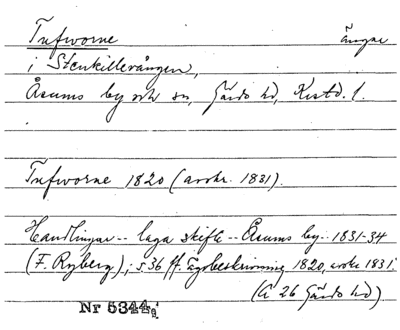 Tufworne ängar
i Stenkillevången,
Åsums by och sn, Gärds hd, Krstd. l.
Tufworne 1820 (avskr. 1831).
Handlingar -- laga skifte -- Åsums by -- 1831-34
(F. Ryberg); s. 36 ff. Egobeskrivning 1820, avskr 1831.
(Å 26 Gärds hd)
Nr 5344